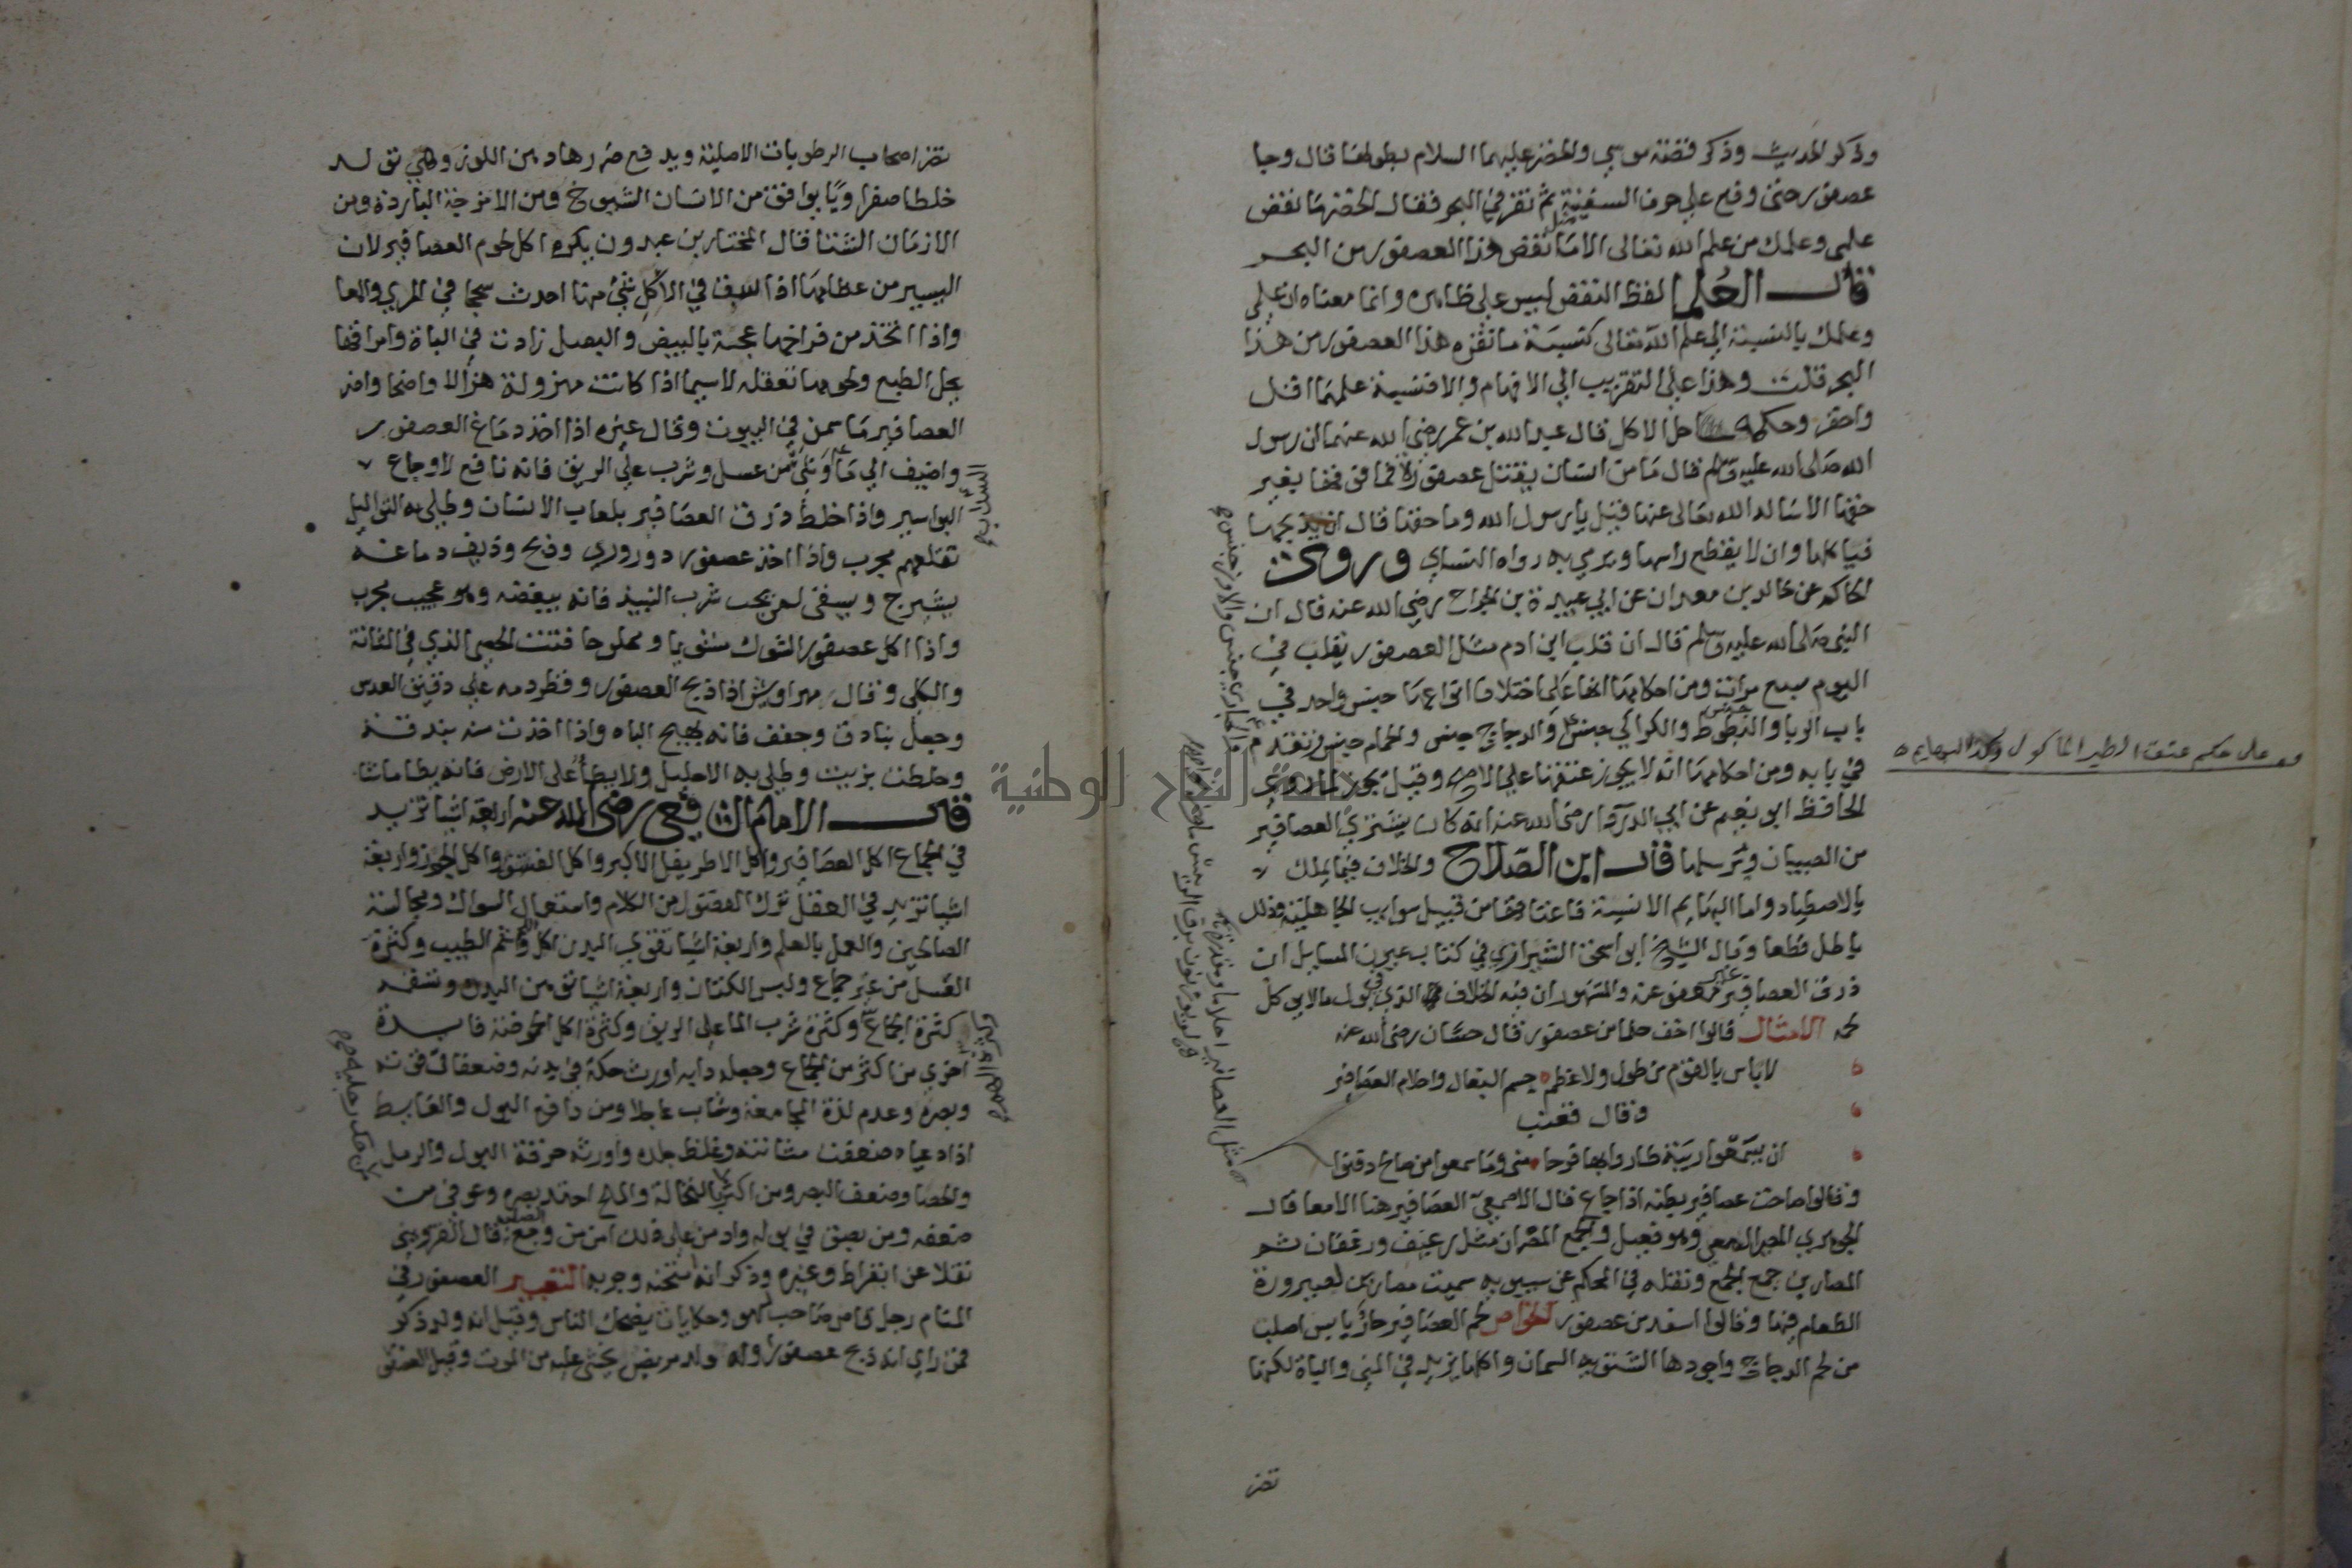 وذكر الحديث وذكر قصته موسى والخضر عليهما السلام بطولها قال وجا
عصفور حتى وقع على حرف السفينة ثم نقر في البحر فقال الخضر ما نقص
علمي وعلمك من علم الله تعالى الا مثل ما نقص هذا العصفور من البحر
قال العلما لفظ النقص ليس على ظاهره وانما معناه ان علمي
وعلمك بالنسبة الى علم الله تعالى كنسبة ما نقره هذا العصفور من هذا
البحر قلت وهذا على التقريب الى الافهام والا فنسبة علمهما اقل
واحقر وحكمه حل الاكل قال عبد الله بن عمر رضي الله عنهما ان رسول
الله صلى الله عليه وسلم قال ما من انسان يقتل عصفورة فما فوقها بغير
حقها الا ساله الله تعالى عنها قيل يا رسول الله وما حقها قال ان يذبحها
فياكلها وان لا يقطع راسها ويرمي به رواه النساي وروى
الحاكم عن خالد بن معدان عن ابي عبيدة بن الجراح رضي الله عنه قال ان
النبي صلى الله عليه وسلم قال ان قلب ابن ادم مثل العصفور يقلب في
اليوم سبع مرات ومن احكامها انها على اختلاف انواعها جنس واحد في
باب الربا والبطوط جنس والكراكي جنس والدجاج جنس والحمام جنس وتقدم
في بابه ومن احكامها انه لا يجوز عتقها على الاصح وقيل يجوز لما روى
الحافظ ابو نعيم عن ابي الدردا رضي الله عنه انه كان يشتري العصافير
من الصبيان ويرسلها قال ابن الصلاح والخلاف فيما يملك
بالاصطياد واما البهايم الانسية فاعتاقها من قبيل سوايب الجاهلية وذلك
باطل قطعا وقال الشيخ ابو اسحق الشيرازي في كتاب عيون المسايل ان
ذرق العصافير معفو عنه والمشهور ان فيه الخلاف الذي في بول ما لا يوكل
لحمه الامثال قالوا اخف حلما من عصفور قال حسان رضي الله عنه
لا باس بالقوم من طول ولا عظم جسم البغال واحلام العصافير
وقال قعنب
ان يسمعوا ريبة طاروا بها فرحا مني وما سمعوا من صالح دفنوا
وقالوا صاحت عصافير بطنه اذا جاع قال الاصمعي العصافير هنا الامعا قال
الجوهري المصير المعي وهو فعيل والجمع المصران مثل رغيف ورغفان ثم
المصارين جمع الجمع ونقله في المحكم عن سيبويه سميت مصارين لصيرورة
الطعام فيها وقالوا اسفد من عصفور الخواص لحم العصافير حار يابس اصلب
من لحم الدجاج واجودها الشتوية السمان واكلها يزيد في المني والباة لكنها
تضر
على حكم عتق الطير الماكول وكذا البهايم
تضر اصحاب الرطوبات الاصلية ويدفع ضررها دهن اللوز وهي تولد
خلطا صفراويا يوافق من الاسنان الشيوخ ومن الامزجة الباردة ومن
الازمان الشتا قال المختار بن عبدون يكره اكل لحوم العصافير لان
اليسير من عظامها اذا في الاكل شي منها احدث سحجا في المري والمعا
واذا اتخذ من فراخها عجة بالبيض والبصل زادت في الباة وامراقها
يحل الطبع ولحومها تعقله لاسيما اذا كانت مهزولة هزالا واضحا واضر
العصافير ما سمن في البيوت وقال غيره اذا اخذ دماغ العصفور
واضيف الى ما وشي من عسل وشرب على الريق فانه نافع لاوجاع
البواسير واذا خلط ذرق العصافير بلعاب الانسان وطلي به الثواليل
تقلعهم مجرب واذا اخذ عصفور دوروري وذبح وذيف دماغه
بشيرج ويسقى لمن يحب شرب النبيذ فانه يبغضه وهو عجيب مجرب
واذا اكل عصفور الشوك مشويا ومملوحا فتت الحصى الذي في المثانة
والكلى وقال مهراريش اذا ذبح العصفور وقطر دمه على دقيق العدس
وجعل بنادق وجفف فانه يهيج الباه واذا اخذت منه بندقة
وخلطت بزيت وطلي به الاحليل ولا يطا على الارض فانه يطا ماشا
قال الامام الشافعي رضي الله عنه اربعة اشيا تزيد
في الجماع اكل العصافير واكل الاطريفل الاكبر واكل الفستق واكل الجوز واربعة
اشيا تزيد في العقل ترك الفضول من الكلام واستعمال السواك ومجالسة
الصالحين والعمل بالعلم واربعة اشيا تقوي البدن اكل اللحم وشم الطيب وكثرة
الغسل من غير جماع ولبس الكتان واربعة اشيا توهن البدن وتسقمه
كثرة الجماع وكثرة شرب الما على الريق وكثرة اكل الحموضة فايدة
اخرى من اكثر من الجماع وجعله دابه اورث حكة في بدنه وضعفا في قوته
وبصره وعدم لذة المجامعة وشاب عاجلا ومن دافع البول والغايط
اذا دعياه ضعفت مثانته وغلظ جلده واورثه حرقة البول والرمل
والحصا وضعف البصر ومن اكثر بالنخالة والملح احتد بصره وعوفي من
ضعفه ومن بصق في بوله وادمن على ذلك امن من وجع الصلب قال القزويني
نقلا عن ابقراط وغيره وذكر انه امتحنه وجربه التعبير العصفور في
المنام رجل قاص صاحب لهو وحكايات يضحك الناس وقيل انه ولد ذكر
فمن راى انه ذبح عصفورا وله ولد مريض يخشى عليه من الموت وقيل العصفور